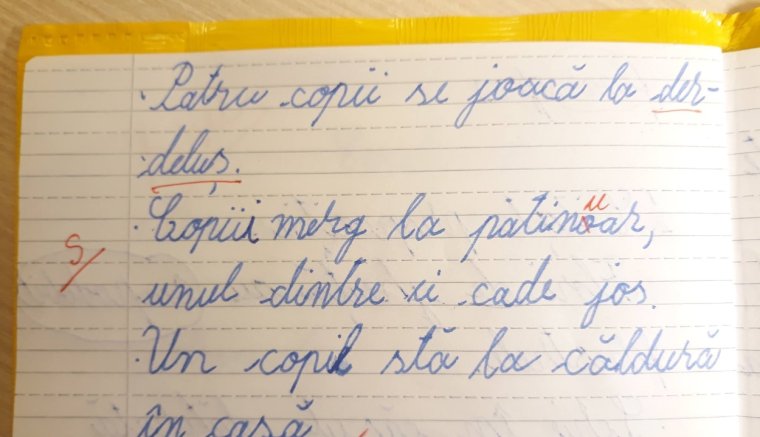 Patru copii se joacă la der-
deluș.
Copiii merg la patinoar,
unul dintre ei cade jos.
Un copil stă la căldură
în casă